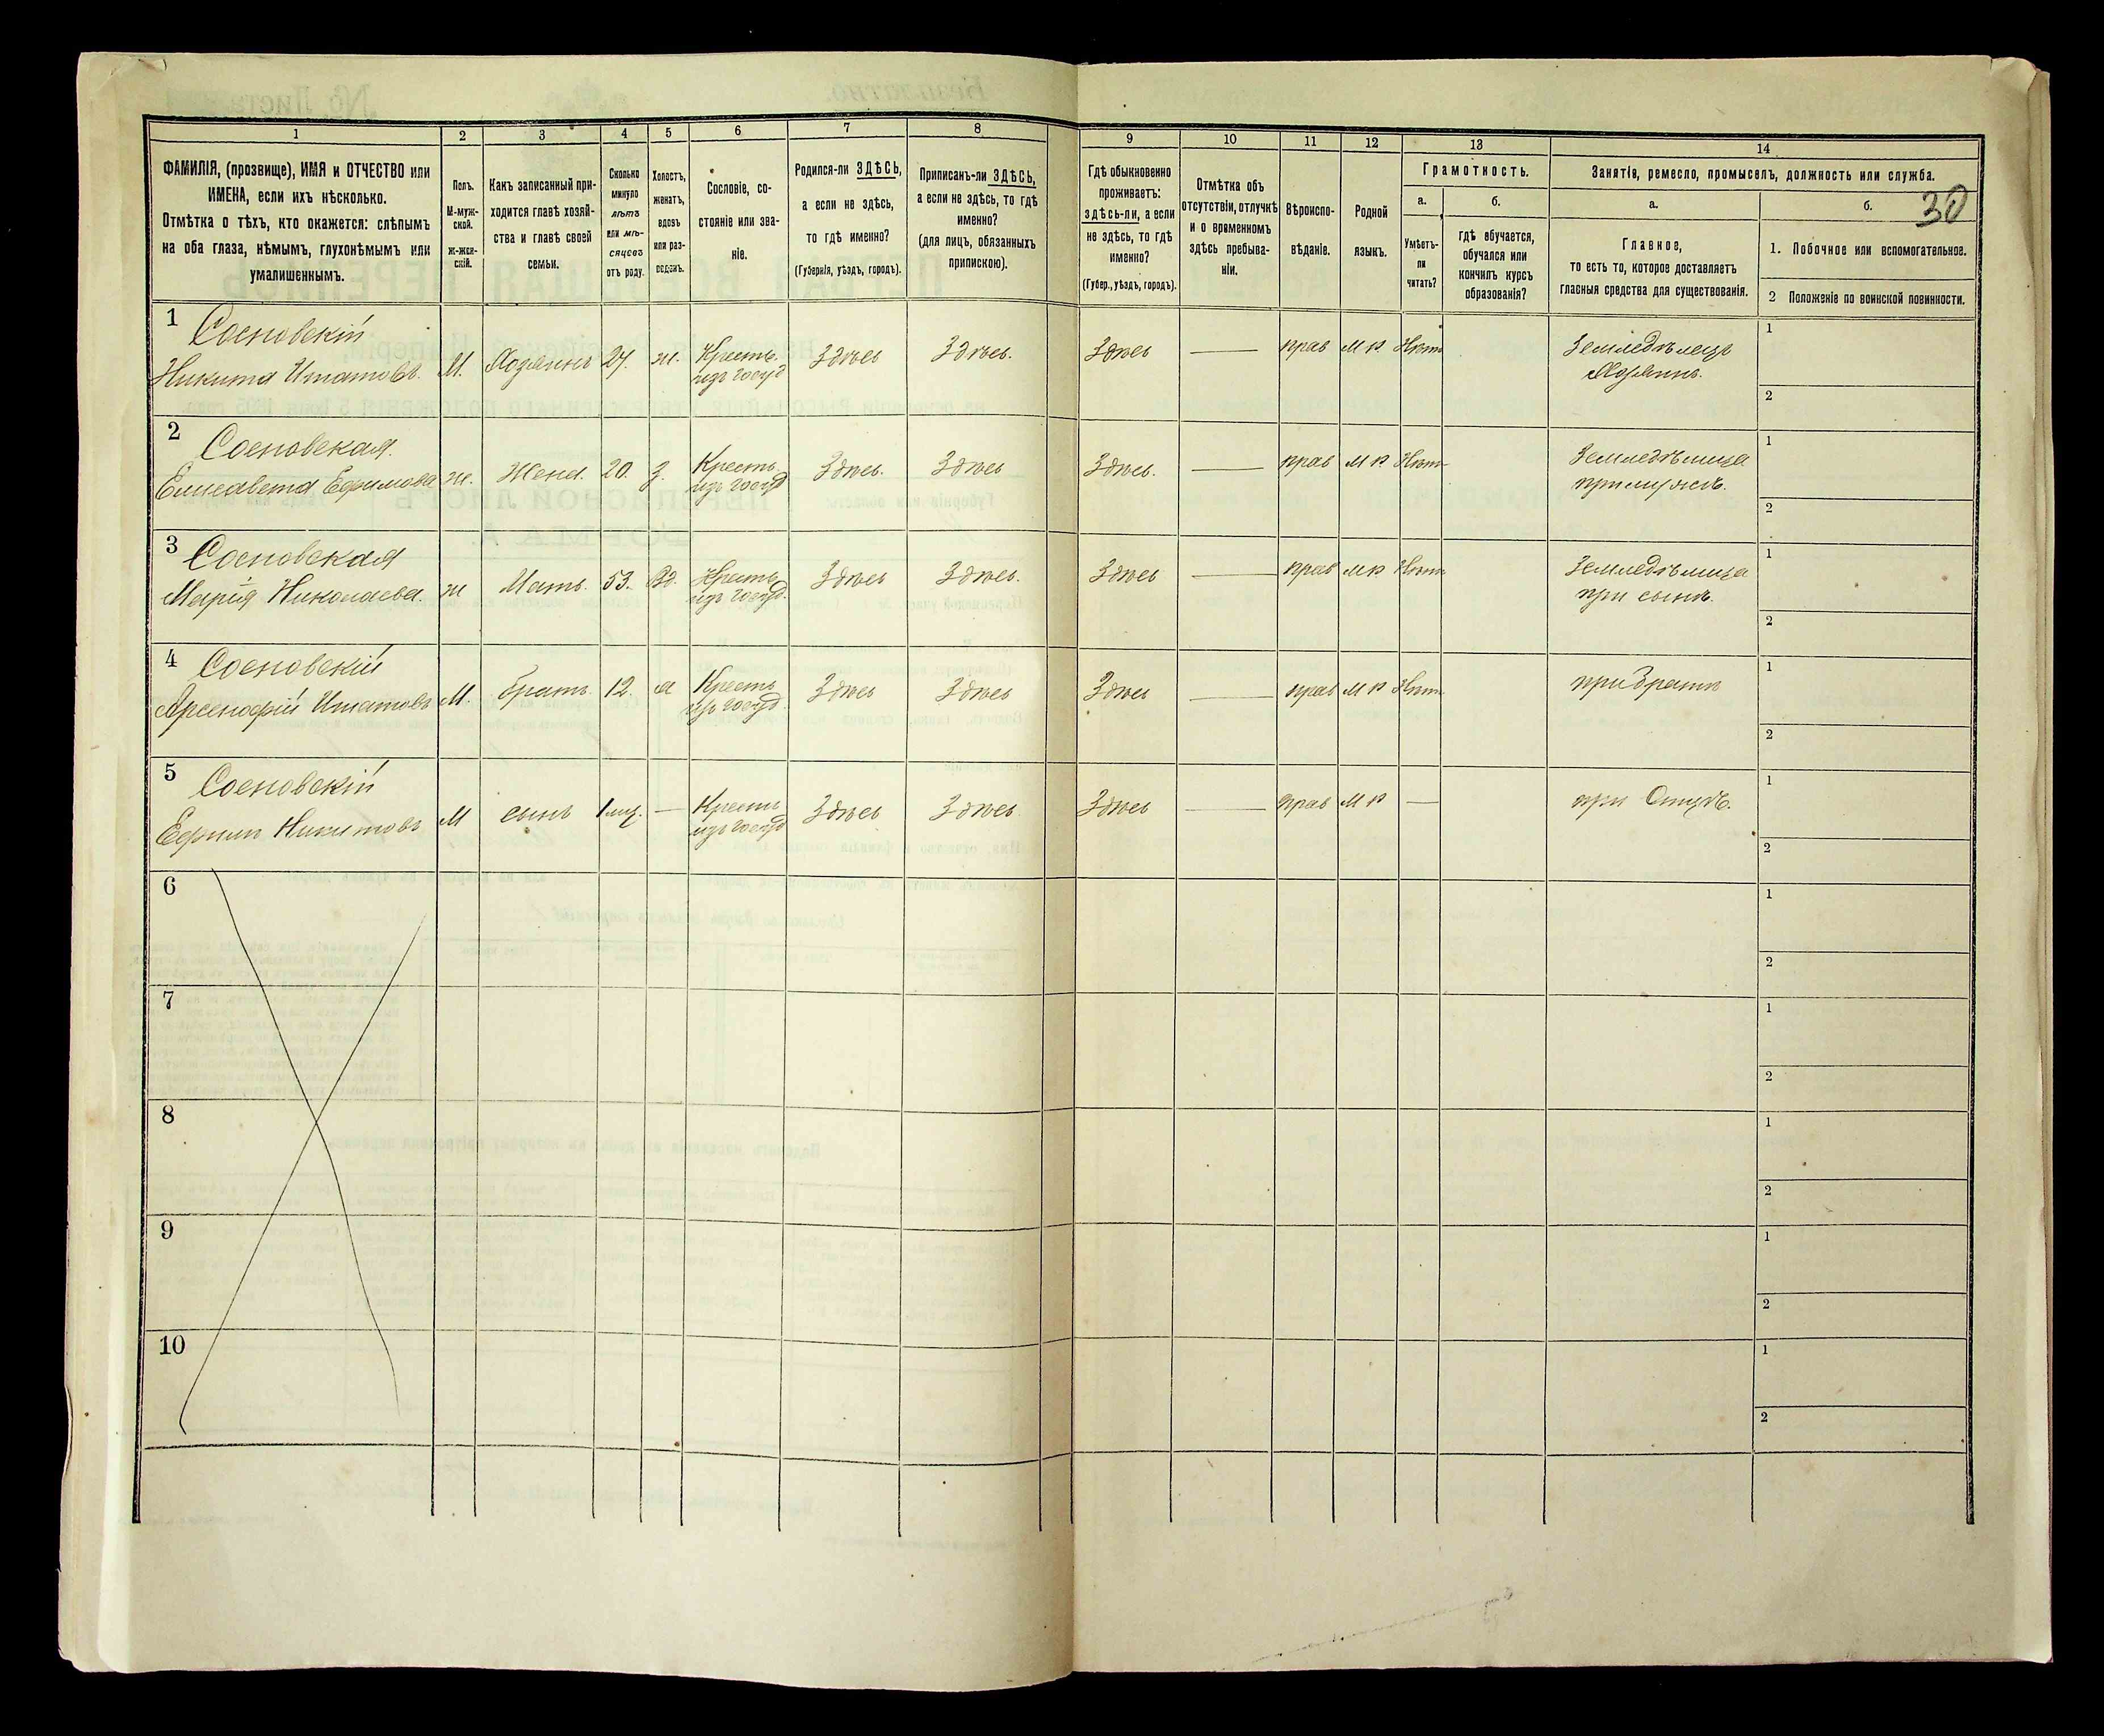 30
1
2
3
4
5
6
7
8
9
10
11
12
13
14
ФАМИЛІЯ, (прозвище), ИМЯ и ОТЧЕСТВО или
ИМЕНА, если ихъ нѣсколько.
Отмѣтка о тѣхъ, кто окажется: слѣпымъ
на оба глаза, нѣмымъ, глухонѣмымъ или
умалишеннымъ.
Полъ.
М-муж-
ской.
Ж-жен-
скій.
Какъ записанный при-
ходится главѣ хозяй-
ства и главѣ своей
семьи.
Сколько
минуло
лѣтъ
или мѣ-
сяцевъ
отъ роду.
Холостъ,
женатъ,
вдовъ
или раз-
веденъ.
Сословіе, со-
стояніе или зва-
ніе.
Родился-ли ЗДѢСЬ,
а если не здѣсь,
то гдѣ именно?
(Губернія, уѣздъ, городъ).
Приписанъ-ли ЗДѢСЬ,
а если не здѣсь, то гдѣ
именно?
(для лицъ, обязанныхъ
припискою).
Гдѣ обыкновенно
проживаетъ:
здѣсь-ли, а если
не здѣсь, то гдѣ
именно?
(Губер., уѣздъ, городъ).
Отмѣтка объ
отсутствіи, отлучкѣ
и о временномъ
здѣсь пребыва-
ніи.
Вѣроиспо-
вѣданіе.
Родной
языкъ.
Грамотность.
а.
Умѣетъ-
ли
читать?
б.
гдѣ обучается,
обучался или
кончилъ курсъ
образованія?
Занятіе, ремесло, промыселъ, должность или служба.
а.
Главное,
то есть то, которое доставляетъ
главныя средства для существованія.
б.
1. Побочное или вспомогательное.
2 Положеніе по воинской повинности.
1
Сосновскій
Никита Игнатовъ.
М.
Хозяинъ
27.
ж.
Кресть.
изъ госуд
Здѣсь
Здѣсь.
Здѣсь
—
прав
МР
Нѣтъ
Земледѣлецъ
Хозяинъ.
1
2
2
Сосновская.
Елисавета Ефимова
ж.
Жена.
20.
З.
Кресть.
изъ госуд
Здѣсь.
Здѣсь
Здѣсь.
—
прав
МР
Нѣтъ
Земледѣлица
при мужѣ.
1
2
3
Сосновская
Марія Николаева.
ж
Мать.
53.
Вд.
Кресть
изъ госуд.
Здѣсь
Здѣсь.
Здѣсь
—
прав
МР
Нѣтъ
Земледѣлица
при сынѣ.
1
2
4
Сосновскій
Игнатовъ
М.
братъ.
12.
Кресть
изъ госуд.
Здѣсь
Здѣсь
Здѣсь
—
прав
МР
Нѣтъ
при братѣ
1
2
5
Сосновскій
Ефимъ Никитовъ
М
сынъ
1 мц.
—
Кресть
изъ госуд
Здѣсь
Здѣсь
Здѣсь
—
прав
МР
—
при Отцѣ.
1
2
6
1
2
7
1
2
8
1
2
9
1
2
10
1
2